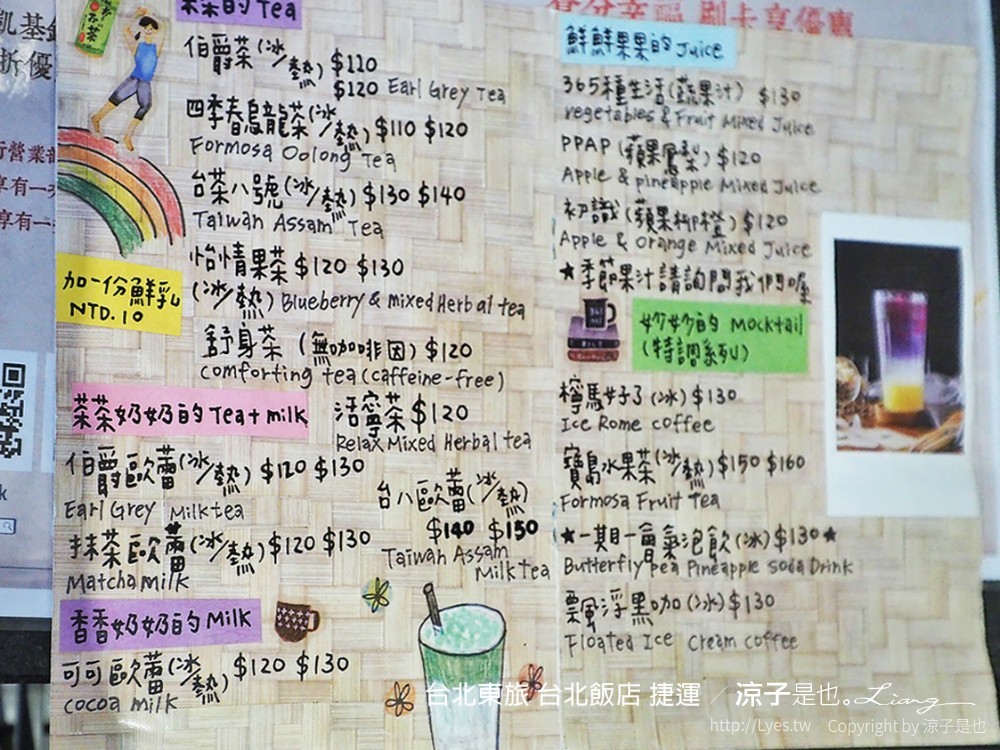 茶茶的 Tea
伯爵茶(冰/熱) $120
$120 Earl Grey Tea
四季春烏龍茶(冰/熱) $110 $120
Formosa Oolong Tea
台茶八號(冰/熱) $130 $140
Taiwan Assam Tea
怡情果茶 $120 $130
(冰/熱) Blueberry & mixed Herbal tea
加一份鮮乳
NTD.10
舒身茶 (無咖啡因) $120
comforting tea (caffeine-free)
茶茶奶奶的 Tea+milk
活寧茶 $120
Relax Mixed Herbal tea
伯爵歐蕾(冰/熱) $120 $130
Earl Grey Milktea
台八歐蕾(冰/熱)
$140 $150
Taiwan Assam
Milk Tea
抹茶歐蕾(冰/熱) $120 $130
Matcha milk
香香奶奶的 Milk
可可歐蕾(冰/熱) $120 $130
cocoa milk
鮮鮮果果的 Juice
365種生活(蔬果汁) $130
vegetables & Fruit Mixed Juice
PPAP (蘋果鳳梨) $120
Apple & pineapple Mixed Juice
初識(蘋果柳橙) $120
Apple & Orange Mixed Juice
★季節果汁請詢問我們喔
妙妙的 Mocktail
(特調系列)
檸馬好了(冰) $130
Ice Rome coffee
寶島水果茶(冰/熱) $150 $160
Formosa Fruit Tea
★一期一會氣泡飲(冰) $130★
Butterfly pea Pineapple soda Drink
飄浮黑咖(冰) $130
Floated Ice cream coffee
刷卡享優惠
凱基
折優
行營業部
享有一
享有一
台北東旅 台北飯店 捷運 ／ 涼子是也。Liang
http://Lyes.tw Copyright by 涼子是也